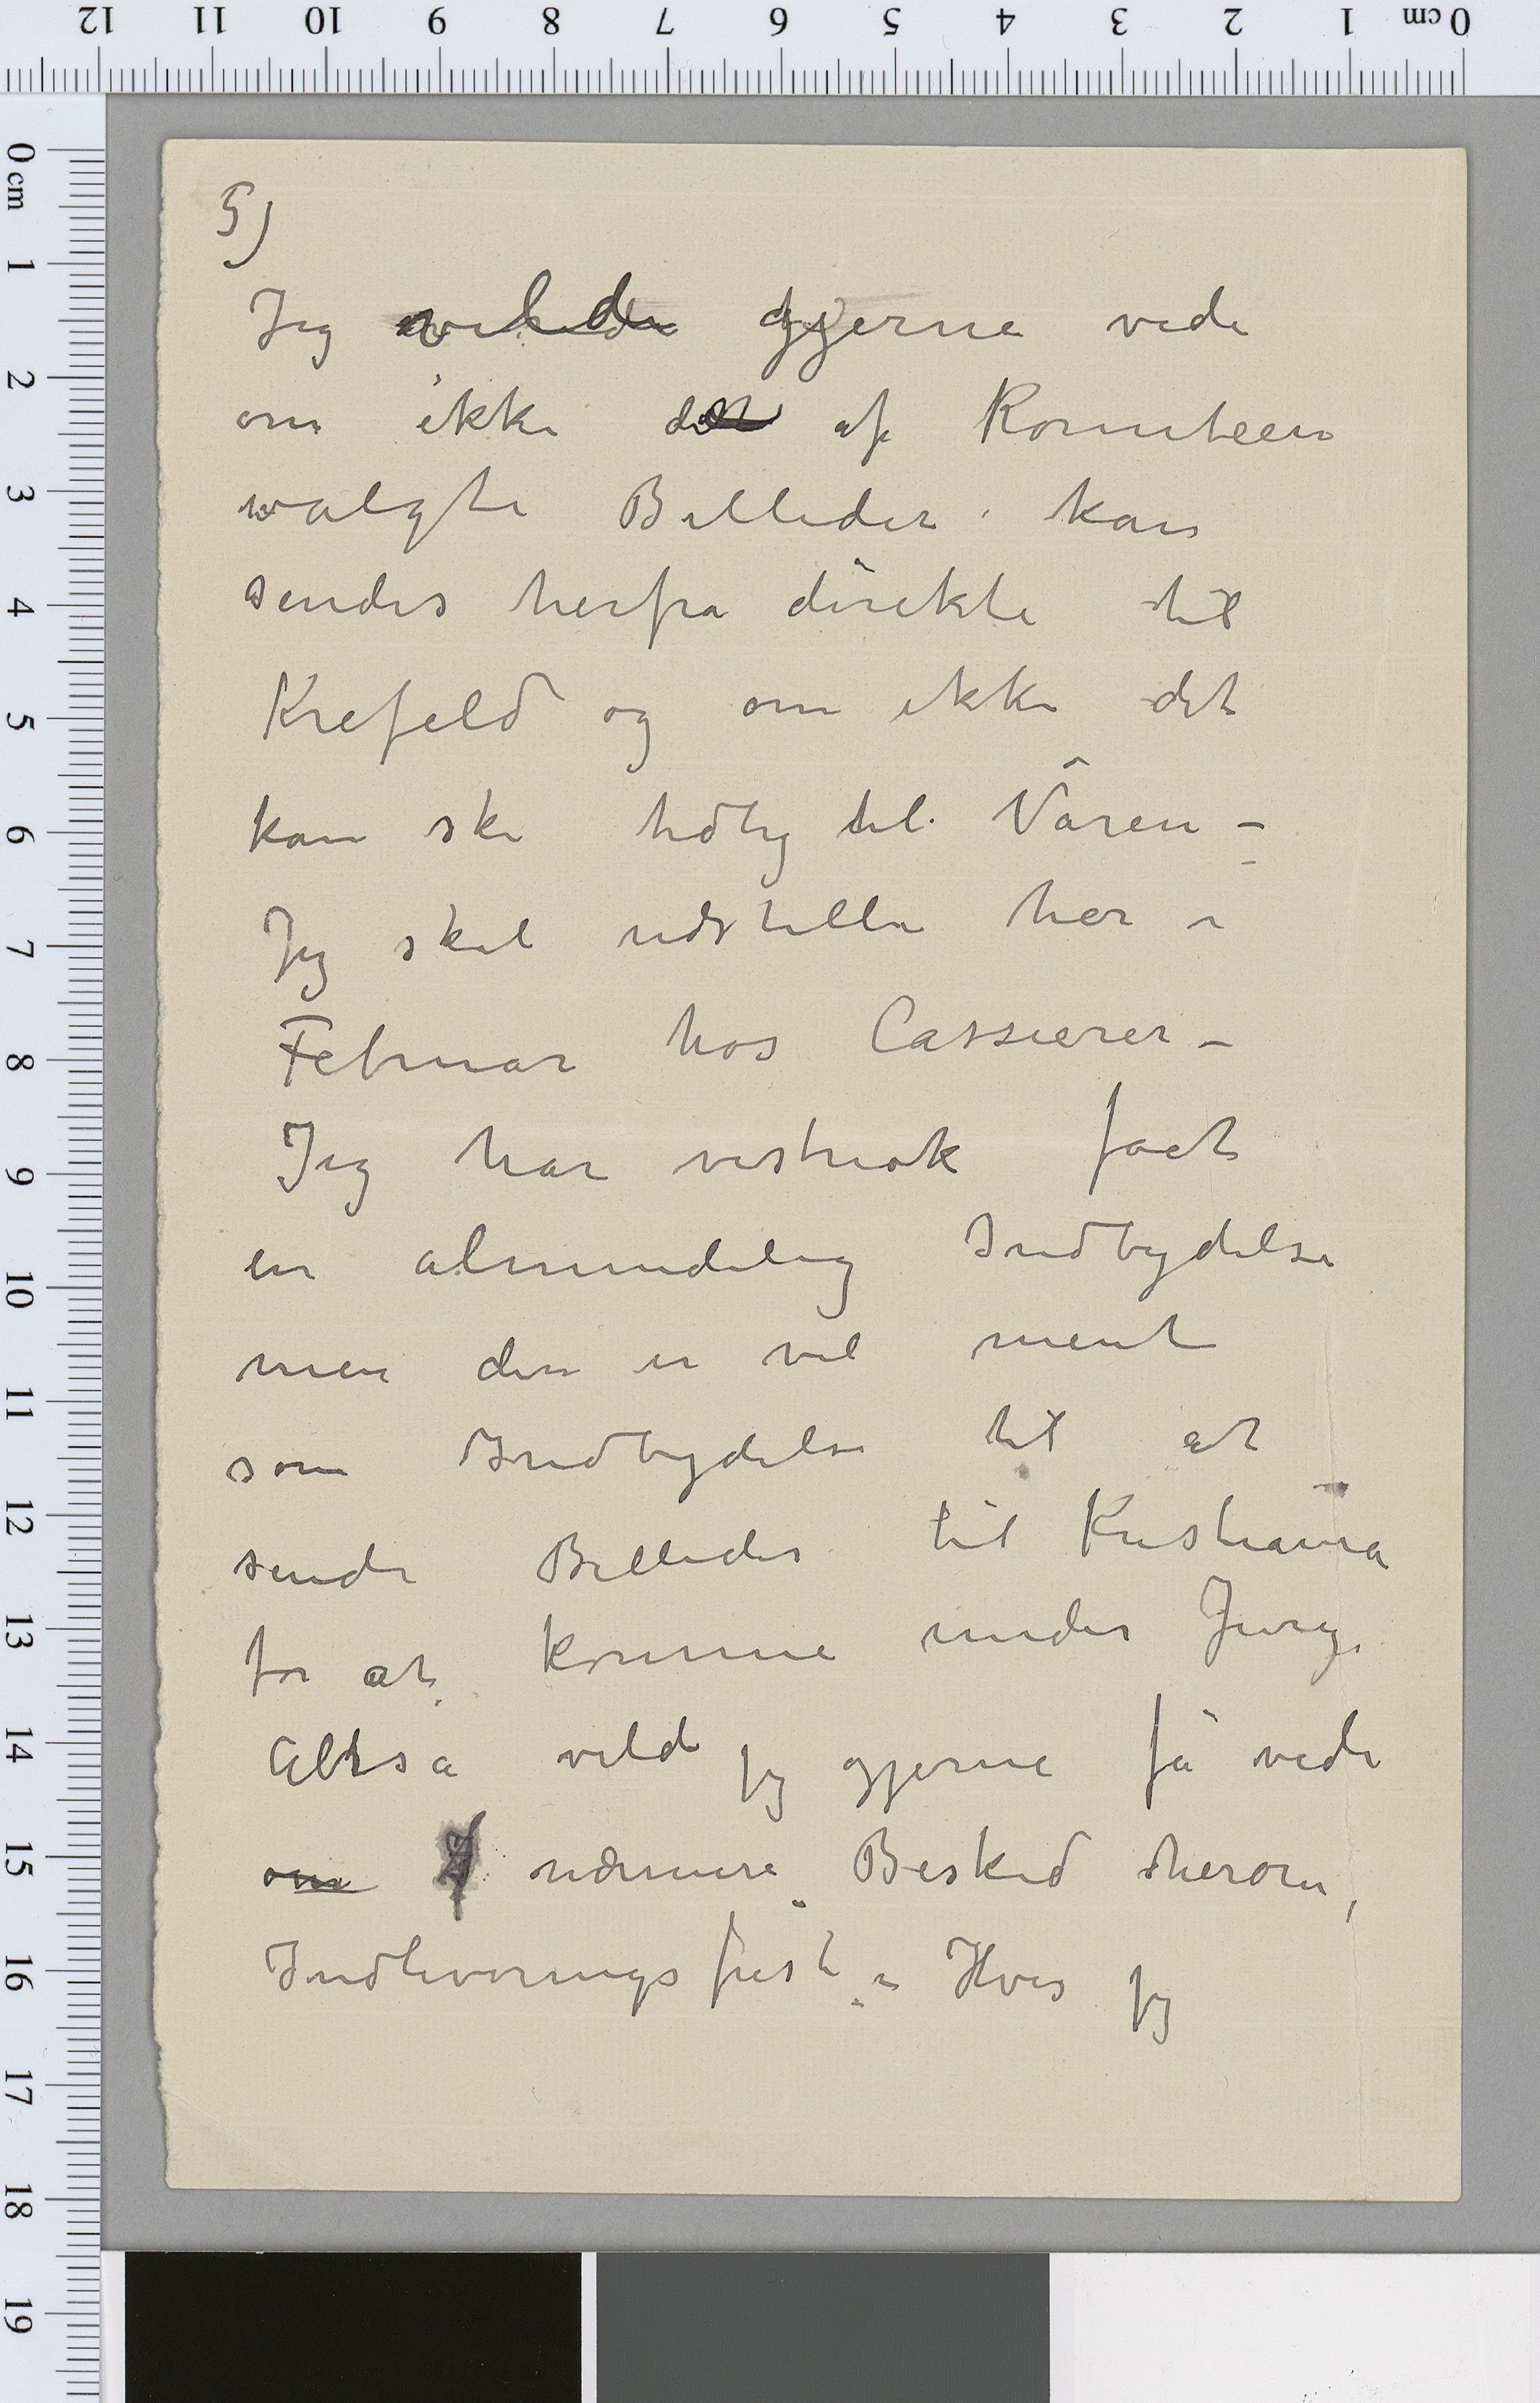 12 11 10 9 8 7 6 5 4 3 2 1 0 cm
0 cm 1 2 3 4 5 6 7 8 9 10 11 12 13 14 15 16 17 18 19
5)
Jeg vilde gjerne vide
om ikke det af Komiteen
valgte Billeder kan
sendes herfra direkte til
Krefeld og om ikke det
kan ske tidlig til Våren –
Jeg skal udstille her i
Februar hos Cassierer –
Jeg har vistnok fået
en almindelig Indbydelse
men den er vel ment
som Indbydelse til at
sende Billeder til Kristiania
for at komme under Jury.
Altså vilde jeg gjerne få vide
om nærmere Besked herom,
Indleveringsfrist. – Hvis jeg